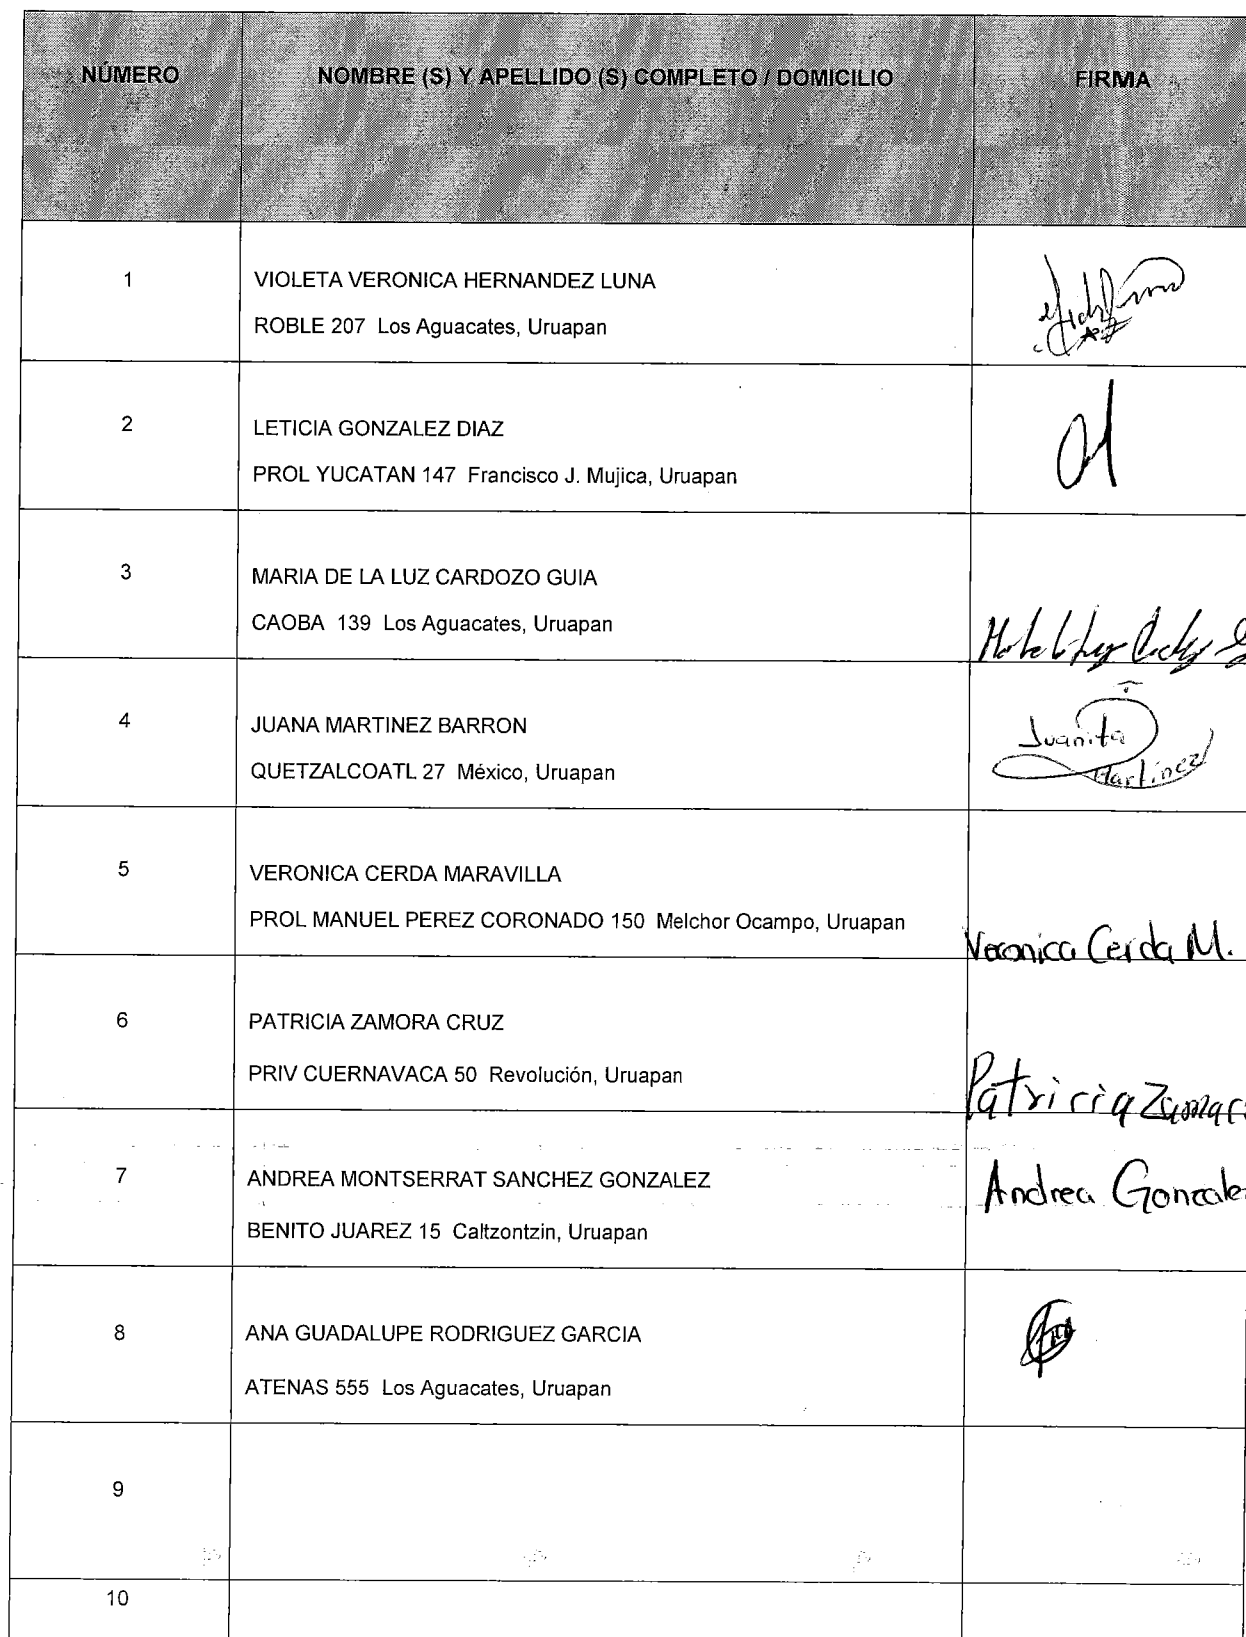 NÚMERO NOMBRE (S) Y APELLIDO (S) COMPLETO / DOMICILIO FIRMA
1 VIOLETA VERONICA HERNANDEZ LUNA
ROBLE 207 Los Aguacates, Uruapan
2 LETICIA GONZALEZ DIAZ
PROL YUCATAN 147 Francisco J. Mujica, Uruapan
3 MARIA DE LA LUZ CARDOZO GUIA
CAOBA 139 Los Aguacates, Uruapan
4 JUANA MARTINEZ BARRON Juanita
QUETZALCOATL 27 México, Uruapan Martinez
5 VERONICA CERDA MARAVILLA
PROL MANUEL PEREZ CORONADO 150 Melchor Ocampo, Uruapan
Veronica Cerda M.
6 PATRICIA ZAMORA CRUZ
PRIV CUERNAVACA 50 Revolución, Uruapan
Patricia Zamara
7 ANDREA MONTSERRAT SANCHEZ GONZALEZ Andrea Gonzalez
BENITO JUAREZ 15 Caltzontzin, Uruapan
8 ANA GUADALUPE RODRIGUEZ GARCIA
ATENAS 555 Los Aguacates, Uruapan
9
10